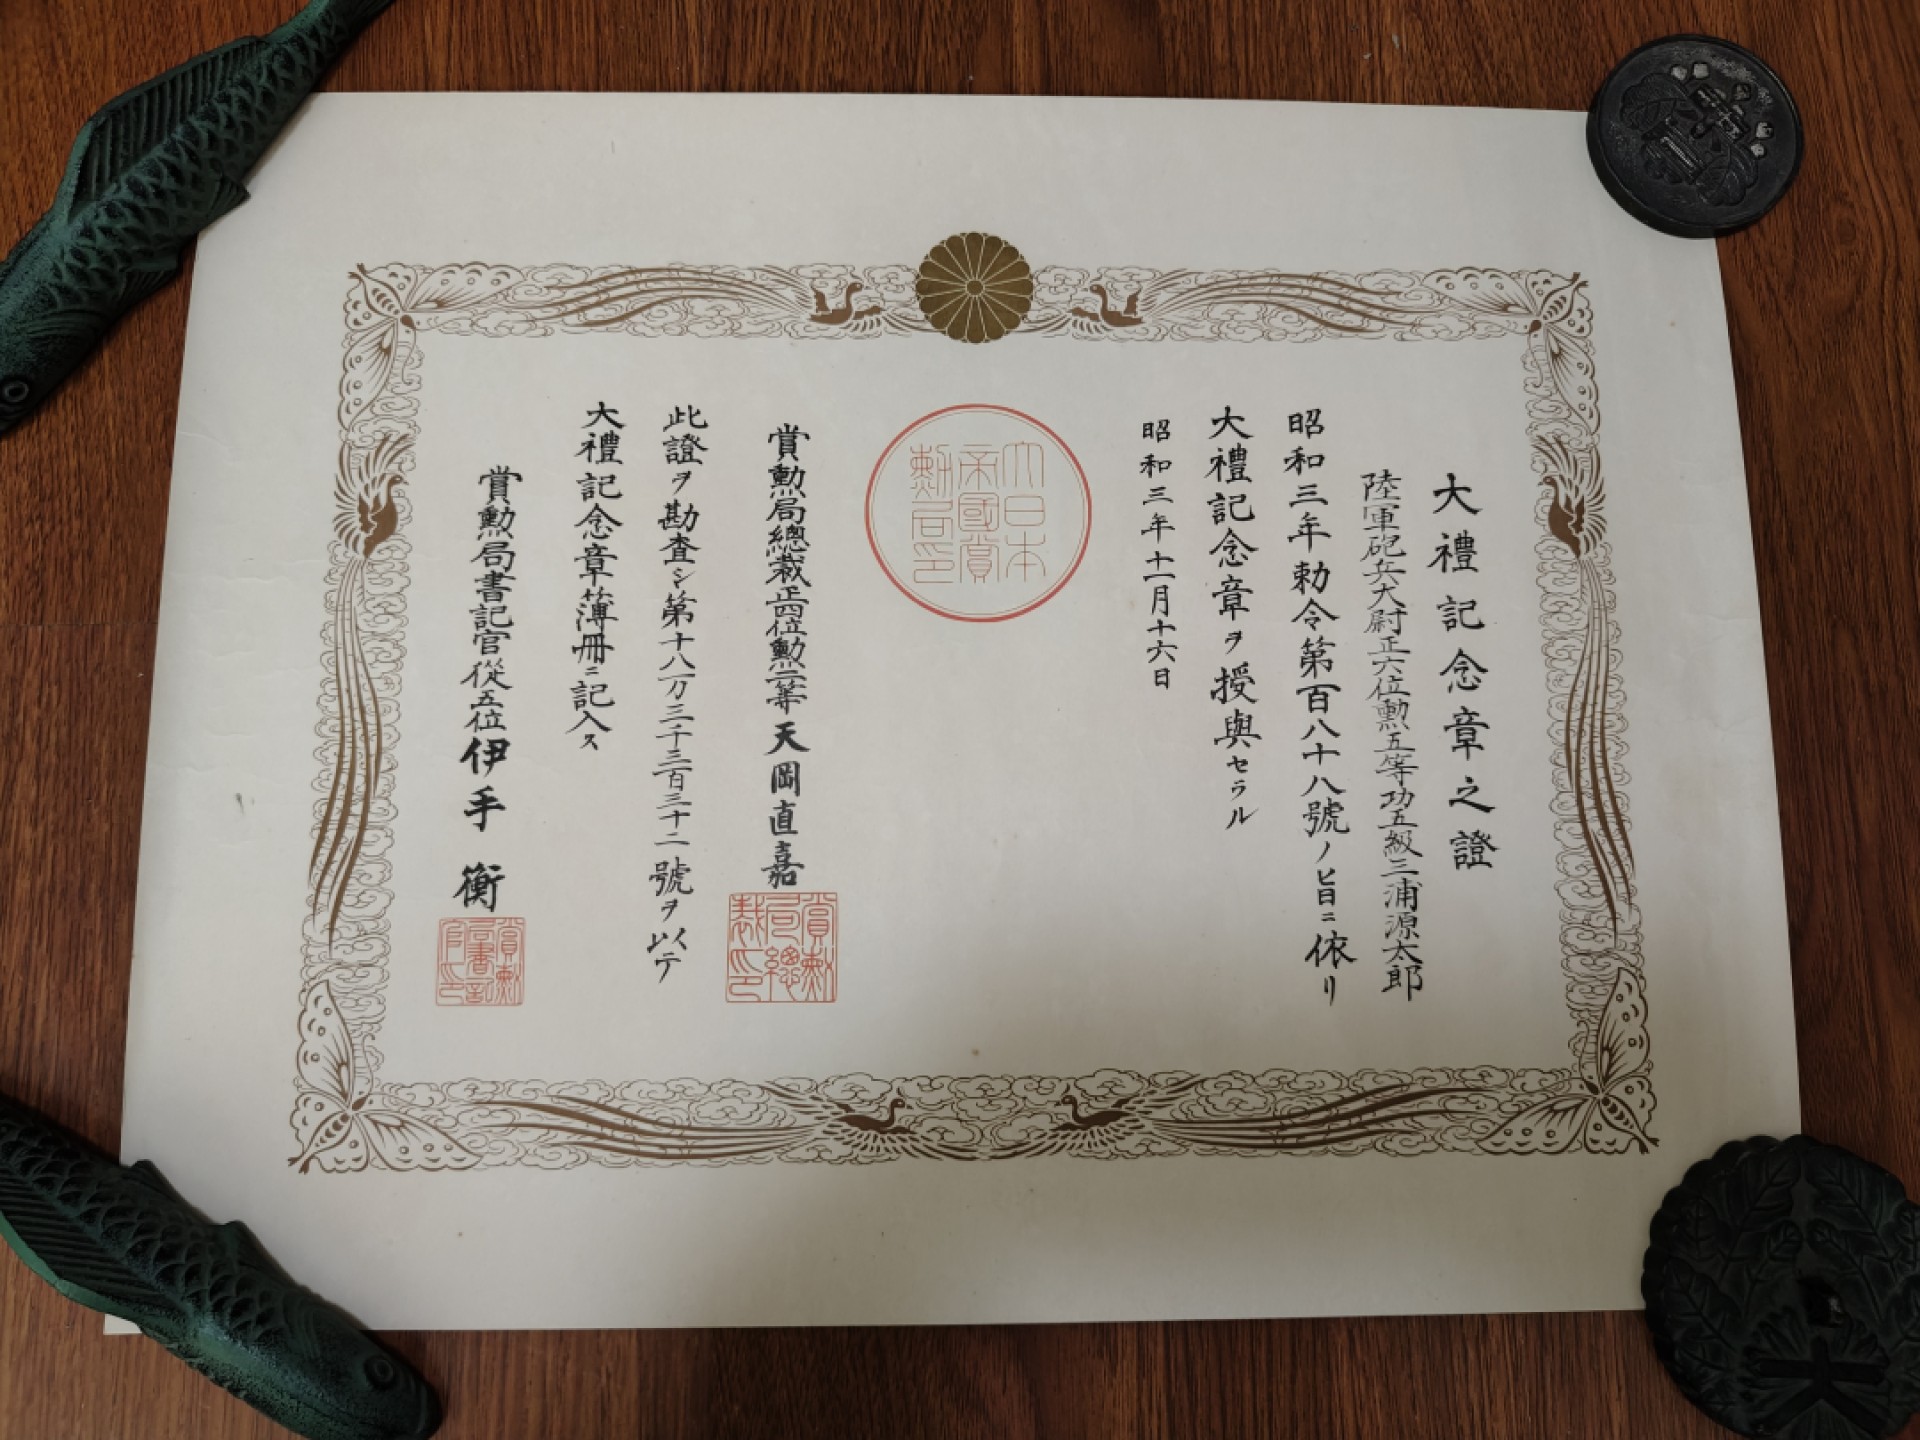 大禮記念章之證
陸軍砲兵大尉正六位勲五等功五級三浦源太郎
昭和三年勅令第百八十八號ノ旨ニ依リ
大禮記念章ヲ授與セラル
昭和三年十一月十六日
大日本
帝國賞
勲局印
賞勲局總裁正四位勲二等天岡直嘉
賞勲
局總
裁印
此證ヲ勘査シ第十八万三千三百三十二號ヲ以テ
大禮記念章簿冊ニ記入ス
賞勲局書記官從五位伊手衡
賞勲
局書記
官印